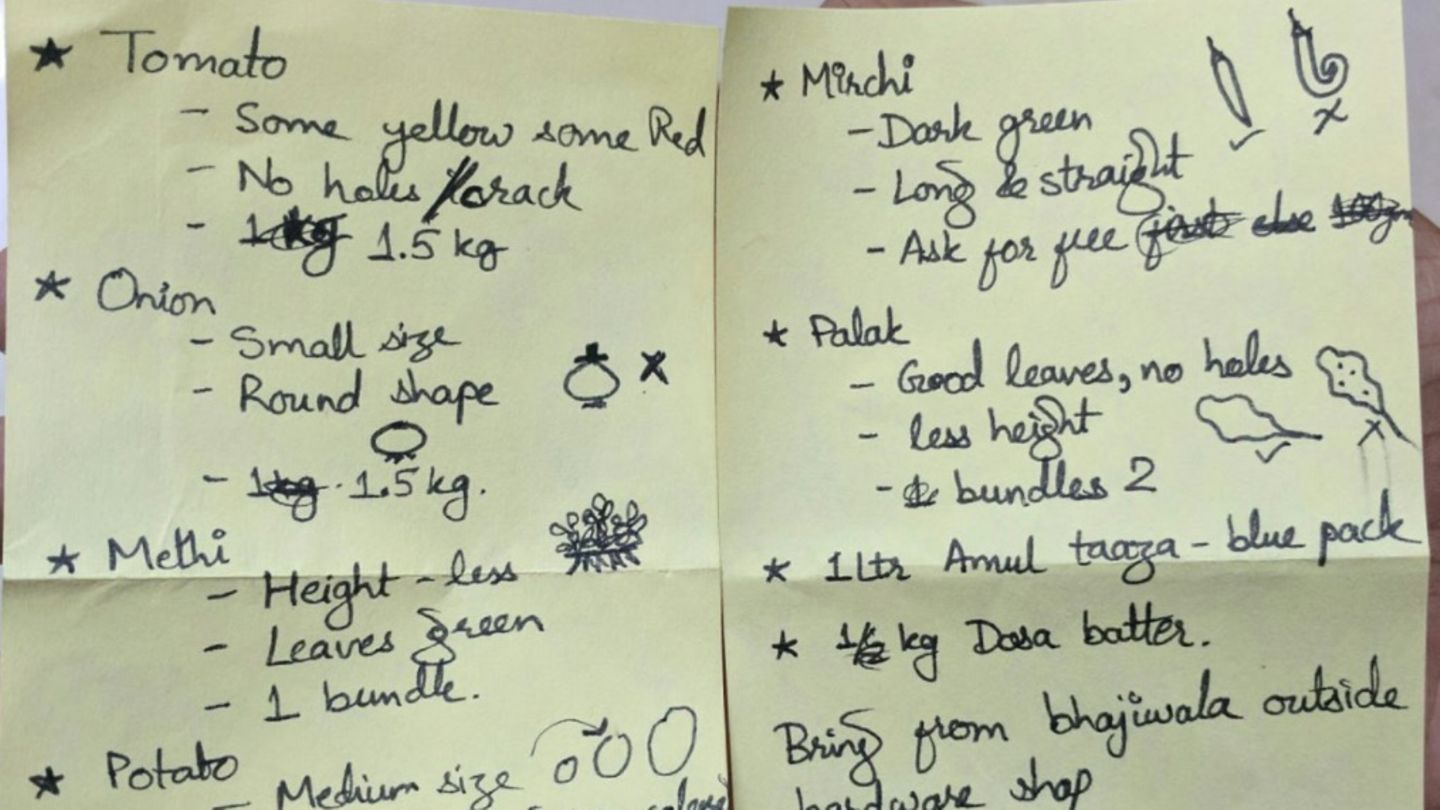 ★ Tomato
- Some yellow some Red
- No holes / crack
- 1 kg 1.5 kg
★ Onion
- Small size
- Round shape
- 1kg. 1.5 kg.
★ Methi
- Height - less
- Leaves green
- 1 bundle.
★ Potato
- Medium size
★ Mirchi
- Dark green
- Long & straight
- Ask for free just else 100gm
★ Palak
- Good leaves, no holes
- less height
- bundles 2
★ 1 Ltr Amul taaza - blue pack
★ 1 kg Dosa batter.
Bring from bhajiwala outside
hardware shop